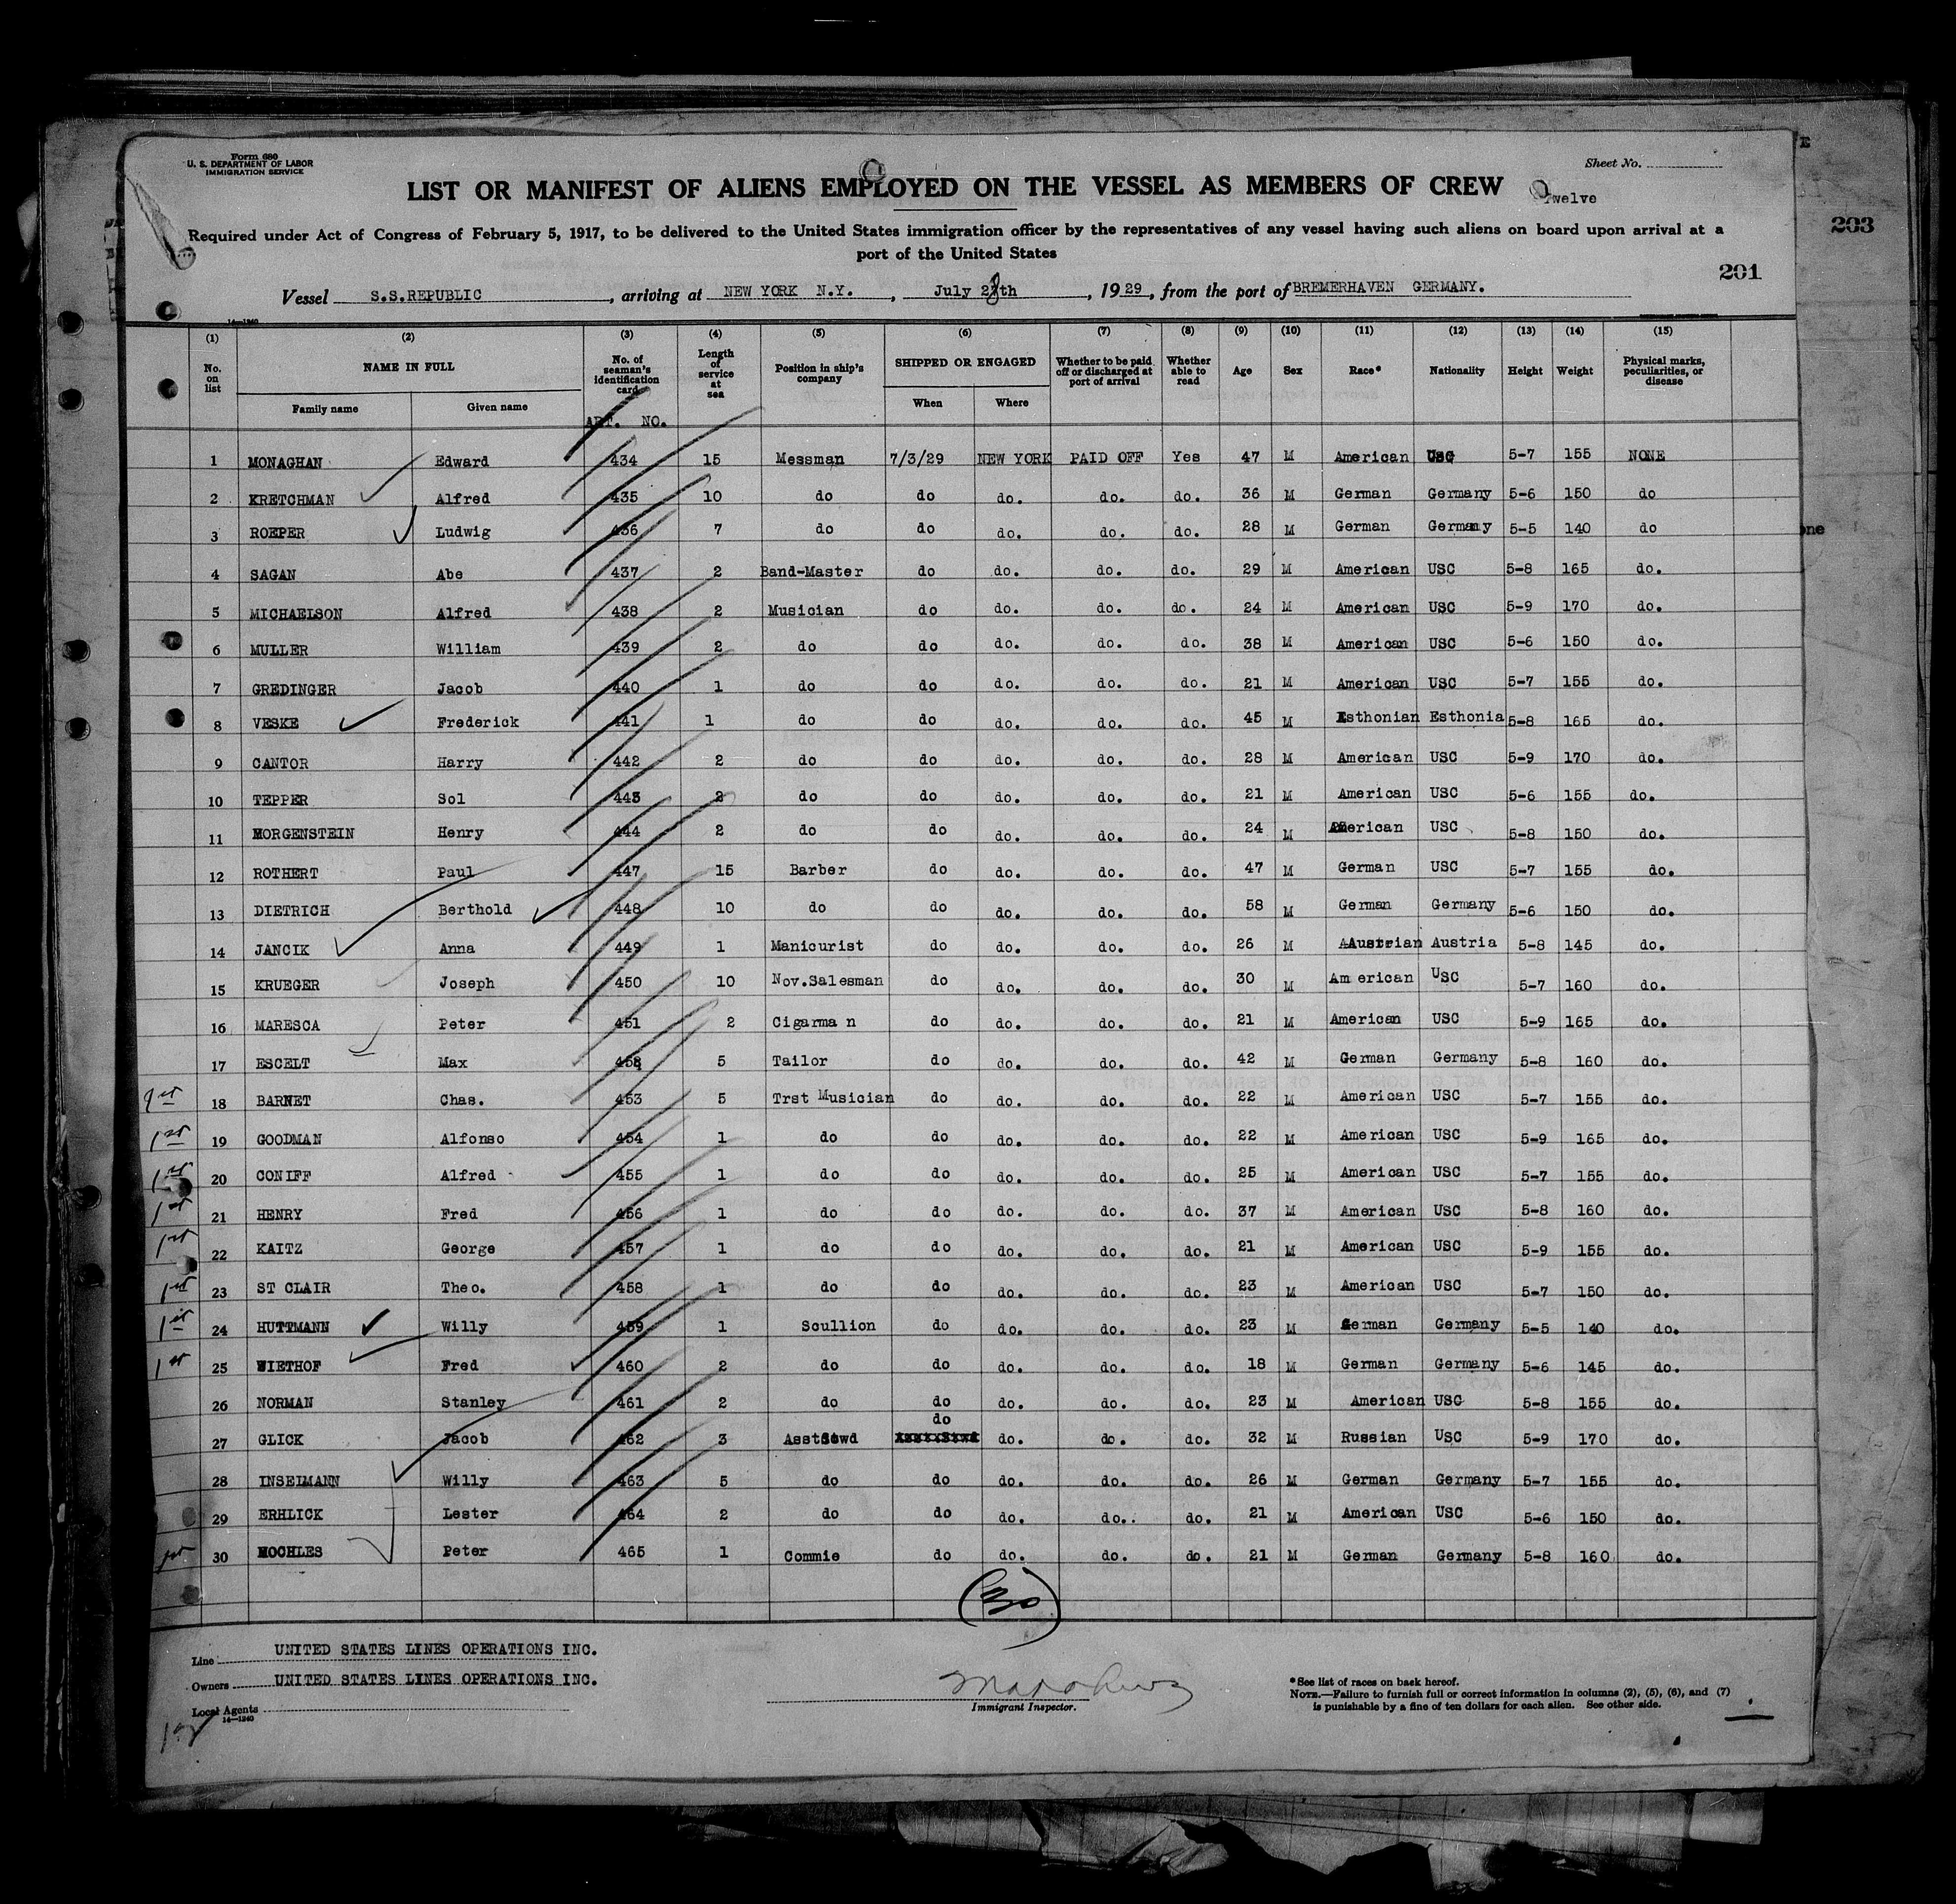 Form 680
U. S. DEPARTMENT OF LABOR
IMMIGRATION SERVICE
Sheet No.
LIST OR MANIFEST OF ALIENS EMPLOYED ON THE VESSEL AS MEMBERS OF CREW
Twelve
203
Required under Act of Congress of February 5, 1917, to be delivered to the United States immigration officer by the representatives of any vessel having such aliens on board upon arrival at a
port of the United States
201
Vessel S.S.REPUBLIC, arriving at NEW YORK N.Y., July 28th, 1929, from the port of BREMERHAVEN GERMANY.
14—1240
(1) (2) (3) (4) (5) (6) (7) (8) (9) (10) (11) (12) (13) (14) (15)
No. on list NAME IN FULL No. of seaman's identification card Length of service at sea Position in ship's company SHIPPED OR ENGAGED Whether to be paid off or discharged at port of arrival Whether able to read Age Sex Race* Nationality Height Weight Physical marks, peculiarities, or disease
Family name Given name When Where
ART. NO.
1 MONAGHAN Edward 434 15 Messman 7/3/29 NEW YORK PAID OFF Yes 47 M American USC 5-7 155 NONE
2 KRETCHMAN Alfred 435 10 do do do. do. do. 36 M German Germany 5-6 150 do
3 ROEPER Ludwig 436 7 do do do. do. do. 28 M German Germany 5-5 140 do
4 SAGAN Abe 437 2 Band-Master do do. do. do. 29 M American USC 5-8 165 do.
5 MICHAELSON Alfred 438 2 Musician do do. do. do. 24 M American USC 5-9 170 do.
6 MULLER William 439 2 do do do. do. do. 38 M American USC 5-6 150 do.
7 GREDINGER Jacob 440 1 do do do. do. do. 21 M American USC 5-7 155 do.
8 VESKE Frederick 441 1 do do do. do. do. 45 M Esthonian Esthonia 5-8 165 do.
9 CANTOR Harry 442 2 do do do. do. do. 28 M American USC 5-9 170 do.
10 TEPPER Sol 443 2 do do do. do. do. 21 M American USC 5-6 155 do.
11 MORGENSTEIN Henry 444 2 do do do. do. do. 24 M American USC 5-8 150 do.
12 ROTHERT Paul 447 15 Barber do do. do. do. 47 M German USC 5-7 155 do.
13 DIETRICH Berthold 448 10 do do do. do. do. 58 M German Germany 5-6 150 do.
14 JANCIK Anna 449 1 Manicurist do do. do. do. 26 M AAustrian Austria 5-8 145 do.
15 KRUEGER Joseph 450 10 Nov.Salesman do do. do. do. 30 M Am erican USC 5-7 160 do.
16 MARESCA Peter 451 2 Cigarma n do do. do. do. 21 M American USC 5-9 165 do.
17 ESCELT Max 452 5 Tailor do do. do. do. 42 M German Germany 5-8 160 do.
1st 18 BARNET Chas. 453 5 Trst Musician do do. do. do. 22 M American USC 5-7 155 do.
1st 19 GOODMAN Alfonso 454 1 do do do. do. do. 22 M American USC 5-9 165 do.
1st 20 CONIFF Alfred 455 1 do do do. do. do. 25 M American USC 5-7 155 do.
1st 21 HENRY Fred 456 1 do do do. do. do. 37 M American USC 5-8 160 do.
1st 22 KAITZ George 457 1 do do do. do. do. 21 M American USC 5-9 155 do.
1st 23 ST CLAIR Theo. 458 1 do do do. do. do. 23 M American USC 5-7 150 do.
1st 24 HUTTMANN Willy 459 1 Scullion do do. do. do. 23 M German Germany 5-5 140 do.
1st 25 WIETHOF Fred 460 2 do do do. do. do. 18 M German Germany 5-6 145 do.
26 NORMAN Stanley 461 2 do do do. do. do. 23 M American USC 5-8 155 do.
do
27 GLICK Jacob 462 3 AsstStwd do. do. do. 32 M Russian USC 5-9 170 do.
28 INSELMANN Willy 463 5 do do do. do. do. 26 M German Germany 5-7 155 do.
29 ERHLICK Lester 464 2 do do do. do.. do. 21 M American USC 5-6 150 do.
1st 30 MOCHLES Peter 465 1 Commie do do. do. do. 21 M German Germany 5-8 160 do.
30
Line UNITED STATES LINES OPERATIONS INC.
Owners UNITED STATES LINES OPERATIONS INC.
Local Agents
14—1240
Immigrant Inspector.
*See list of races on back hereof.
NOTE.—Failure to furnish full or correct information in columns (2), (5), (6), and (7)
is punishable by a fine of ten dollars for each alien. See other side.